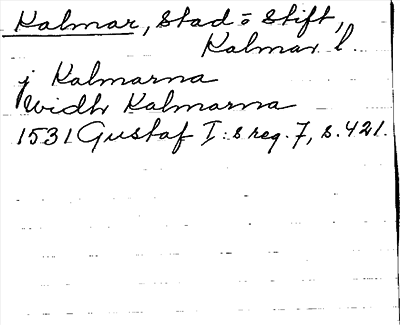 Kalmar, Stad o Stift,
Kalmar l.
j Kalmarna
widh Kalmarna
1531 Gustaf I:s reg. 7, s. 421.